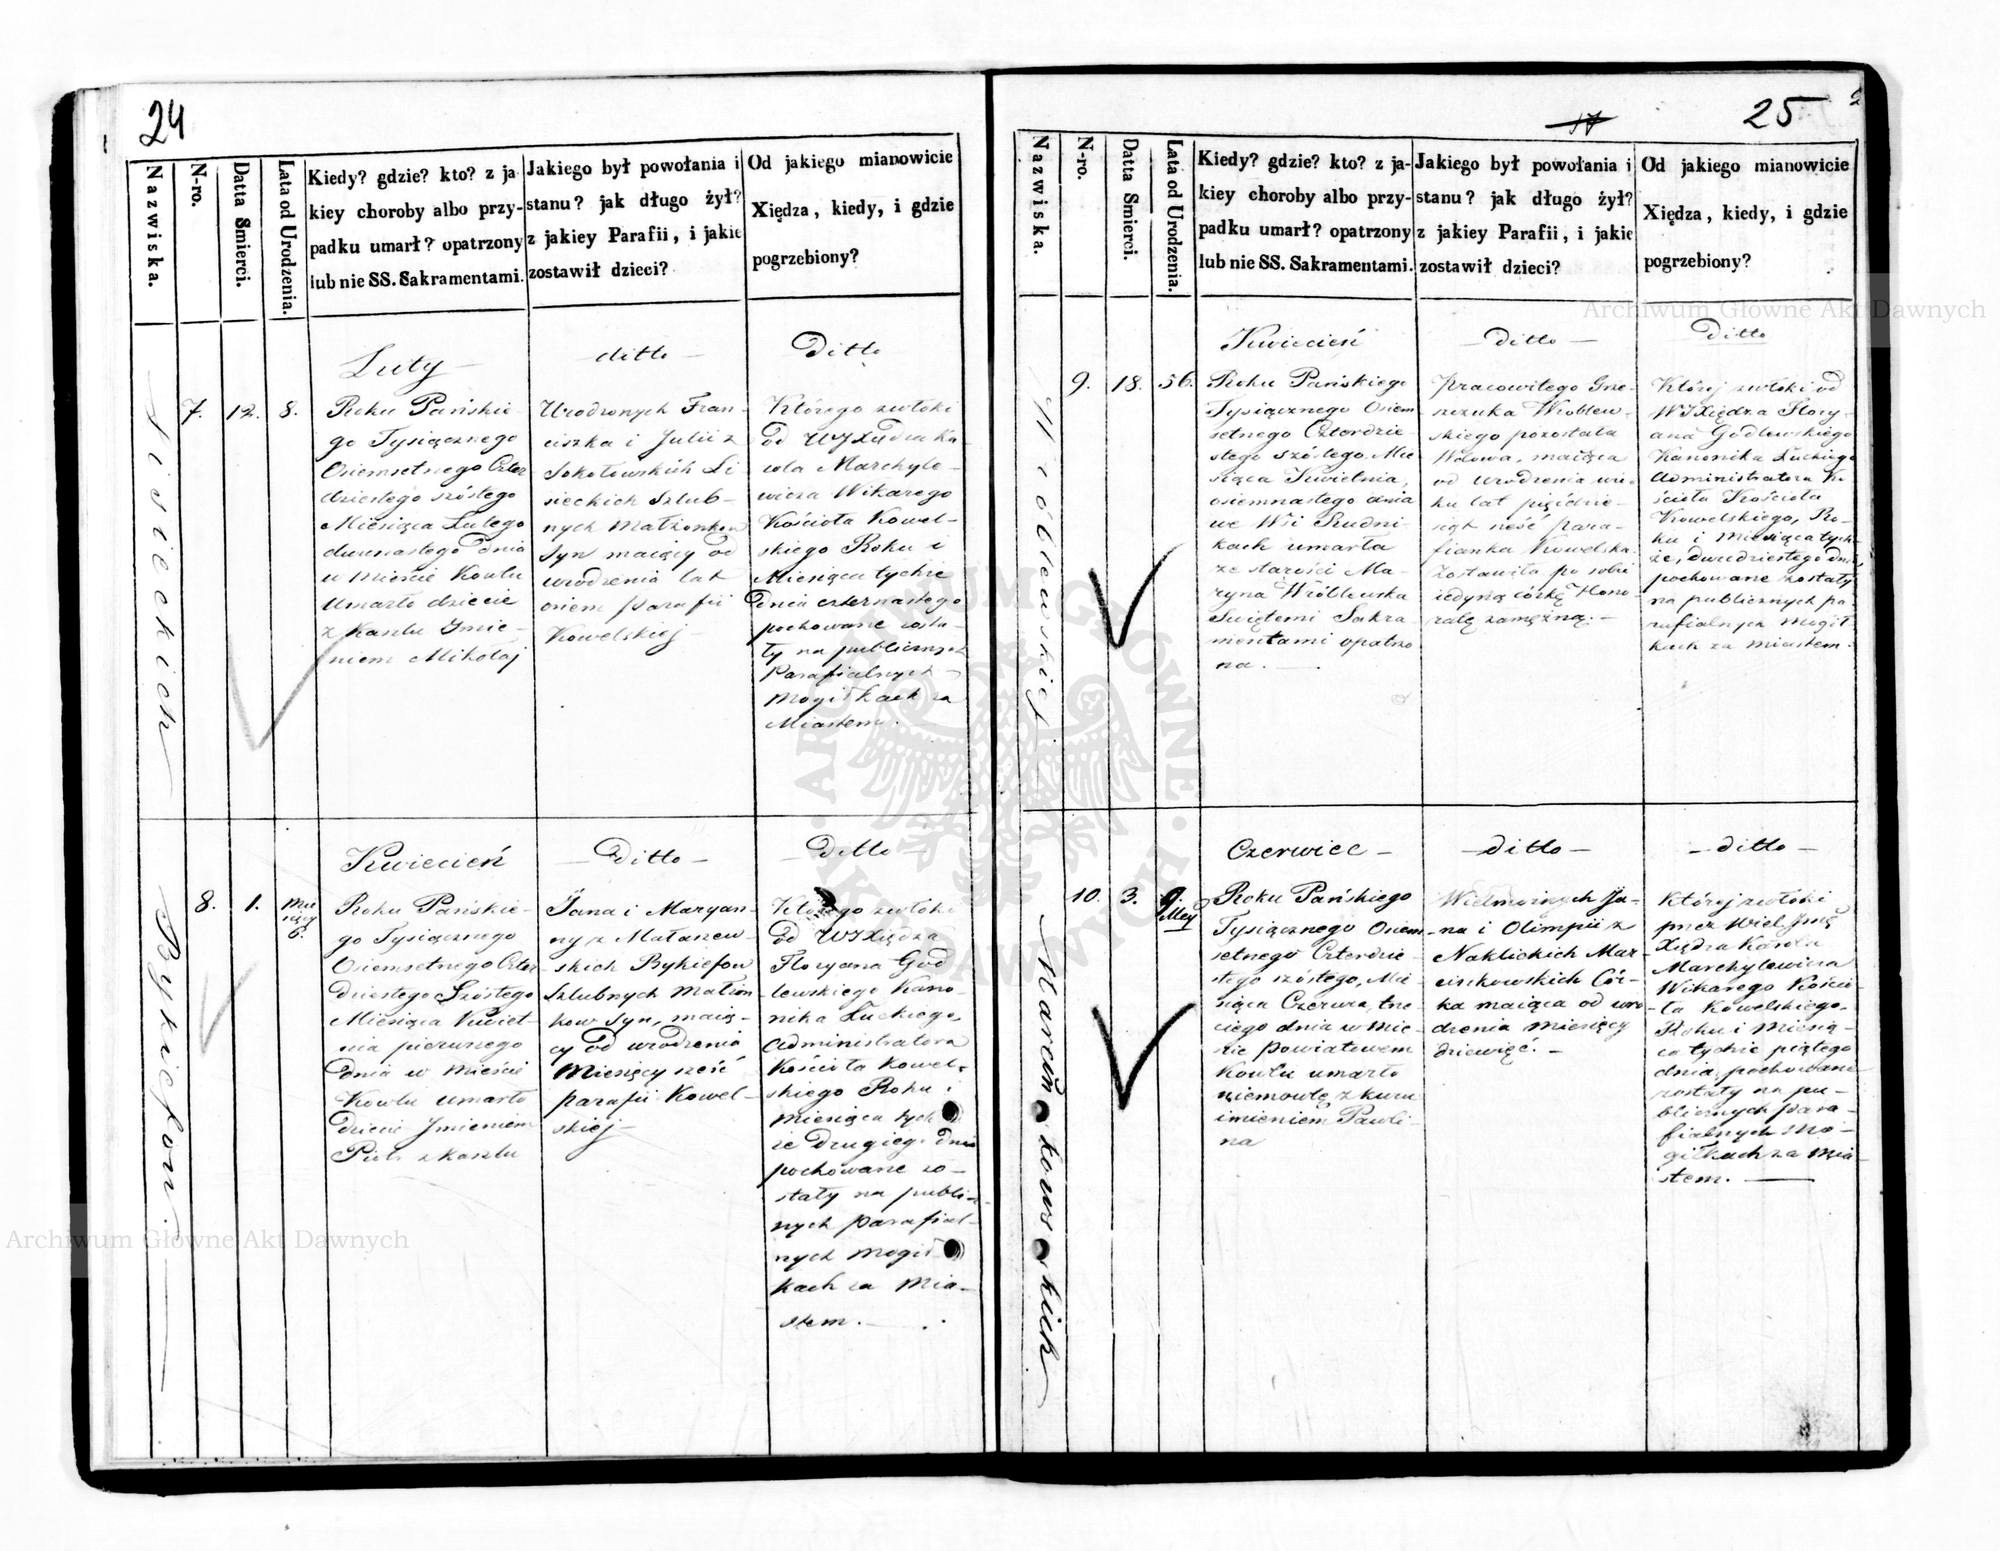 24
Nazwiska.
N-ro.
Datta Smierci.
Lata od Urodzenia.
Kiedy? gdzie? kto? z ja-
kiey choroby albo przy-
padku umarł? opatrzony
lub nie SS. Sakramentami.
Jakiego był powołania i
stanu? jak długo żył?
z jakiey Parafii, i jakie
zostawił dzieci?
Od jakiego mianowicie
Xiędza, kiedy, i gdzie
pogrzebiony?
Lisieckich
7.
12.
8.
Luty —
Roku Pańskie-
go Tysiącznego
Osiemsetnego Czter
dziestego szóstego
Miesiąca Lutego
dwunastego dnia
w Mieście Kowlu
Umarło dziecie
z Kaszlu Imie-
niem Mikołaj
— ditto —
Urodzonych Fran-
ciszka i Julii z
Sokołowskich Li
sieckich Szlub-
nych Małżonkow
Syn maiący od
urodzenia lat
osiem parafii
Kowelskiej —
Ditto
Którego zwłoki
od WJXiędza Ka
rola Marchyle-
wicza Wikarego
Kościoła Kowel-
skiego Roku i
Miesiąca tychże
Dnia czternastego
pochowane zosta-
ły na publicznych
Parafialnych
Mogiłkach za
Miastem.
Bykiefow.
8.
1.
Mie
sięcy
6.
Kwiecień
Roku Pańskie-
go Tysiącznego
Osiemsetnego Czter
Dziestego Szóstego
Miesiąca Kwiet-
nia pierwszego
Dnia w Mieście
Kowlu umarło
Dziecie Imieniem
Piotr z Kaszlu
— Ditto —
Jana i Maryan-
ny z
skich Bykiefow
Szlubnych Małżon
kow Syn, maią-
cy od urodzenia
Miesięcy sześć
parafii Kowel-
skiej —
— Ditto
Którego zwłoki
od WJXiędza
Floryana God
lewskiego Kano-
nika Łuckiego,
Administratora
Kościoła Kowel-
skiego Roku i
Miesiąca tych
że Drugiego Dnia
pochowane zo-
stały na publi-
nych parafial-
nych Mogił
kach za Mia-
stem. —
17
25
Nazwiska.
N-ro.
Data Smierci.
Lata od Urodzenia.
Kiedy? gdzie? kto? z ja-
kiey choroby albo przy-
padku umarł? opatrzony
lub nie SS. Sakramentami.
Jakiego był powołania i
stanu? jak długo żył?
z jakiey Parafii, i jakie
zostawił dzieci?
Od jakiego mianowicie
Xiędza, kiedy, i gdzie
pogrzebiony?
Wróblewskiej
9.
18.
56.
Kwiecień
Roku Pańskiego
Tysiącznego Osiem
setnego Czterdzie-
stego szóstego, Mie
siąca Kwietnia,
osiemnastego dnia
we Wsi Rudni-
kach umarła
ze starości Ma-
ryna Wróblewska
Swiętemi Sakra
mentami opatrzo
na. —
— ditto —
Pracowitego
Wroblew-
skiego pozostała
Wdowa, maiąca
od urodzenia wie
ku lat pięćdzie-
siąt sześć para-
fianka Kowelska.
Zostawiła po sobie
iedyną córkę Hono-
ratę zamężną. —
Ditto
Której zwłoki od
WJXiędza Flory-
ana Godlewskiego
Kanonika Łuckiego
Administratora Ko
ścioła Kościoła
Kowelskiego, Ro-
ku i Miesiąca tych
że, dwudziestego dnia,
pochowane zostały
na publicznych pa-
rafialnych Mogił-
kach za Miastem.
Marcinkowskich
10.
3.
9.
Mcy
Czerwiec —
Roku Pańskiego
Tysiącznego Osiem
setnego Czterdzie-
stego szóstego, Mie-
siąca Czerwca, trze-
ciego dnia w Mie-
ście Powiatowem
Kowlu umarło
niemowlę z kuru
imieniem Pauli-
na
— ditto —
Wielmożnych Ja-
na i Olimpii z
Naklickich Mar-
cinkowskich Cór-
ka maiąca od uro
dzenia miesięcy
dziewięć. —
— ditto —
Której zwłoki
przez Wiel. Jmę
Xiędza Karola
Marchylewicza
Wikarego Kościo-
ła Kowelskiego,
Roku i Miesią-
ca tychże piątego
dnia, pochowane
zostały na pu-
blicznych para-
fialnych Mo-
giłkach za Mia-
stem. —
Archiwum Główne Akt Dawnych
Archiwum Główne Akt Dawnych
ARCHIWUM GŁÓWNE · AKT DAWNYCH ·